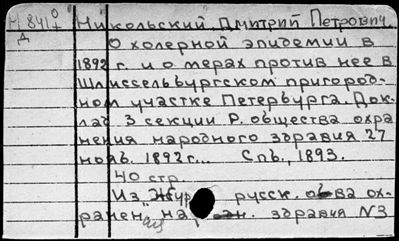 Никольский, Дмитрий Петрович.
О холерной эпидемии в
1892 г. и о мерах против нее в
Шлиссельбургском пригород-
ном участке Петербурга. Док-
лад 3 секции Р. общества охра
нения народного здравия 27
нояб. 1892 г... Спб., 1893.
40 стр.
Из „Жур русск. об-ва ох-
ранен. на здравия N3